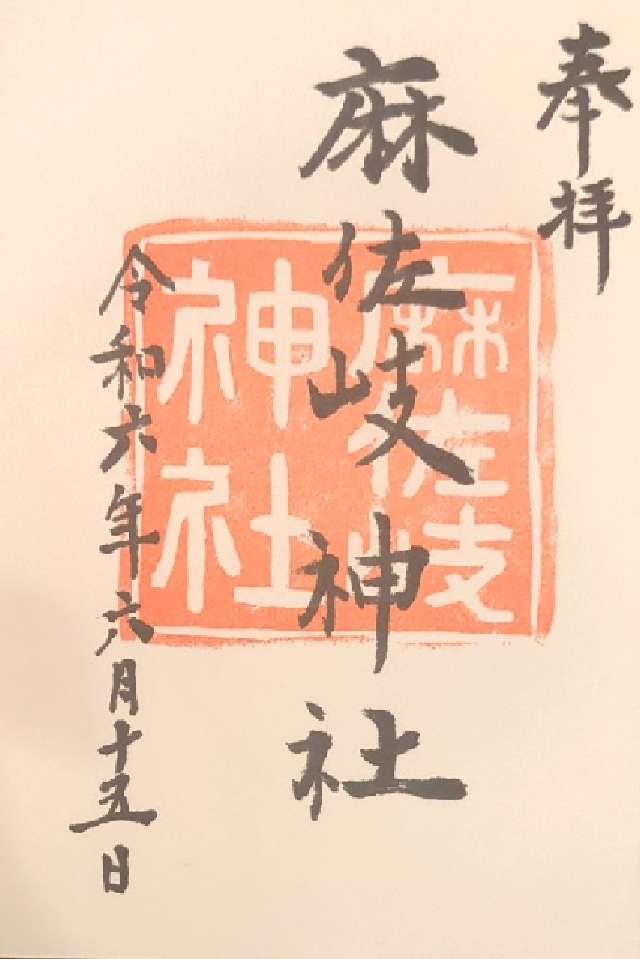 奉拝
麻佐岐神社
麻佐岐
神社
令和六年六月十五日